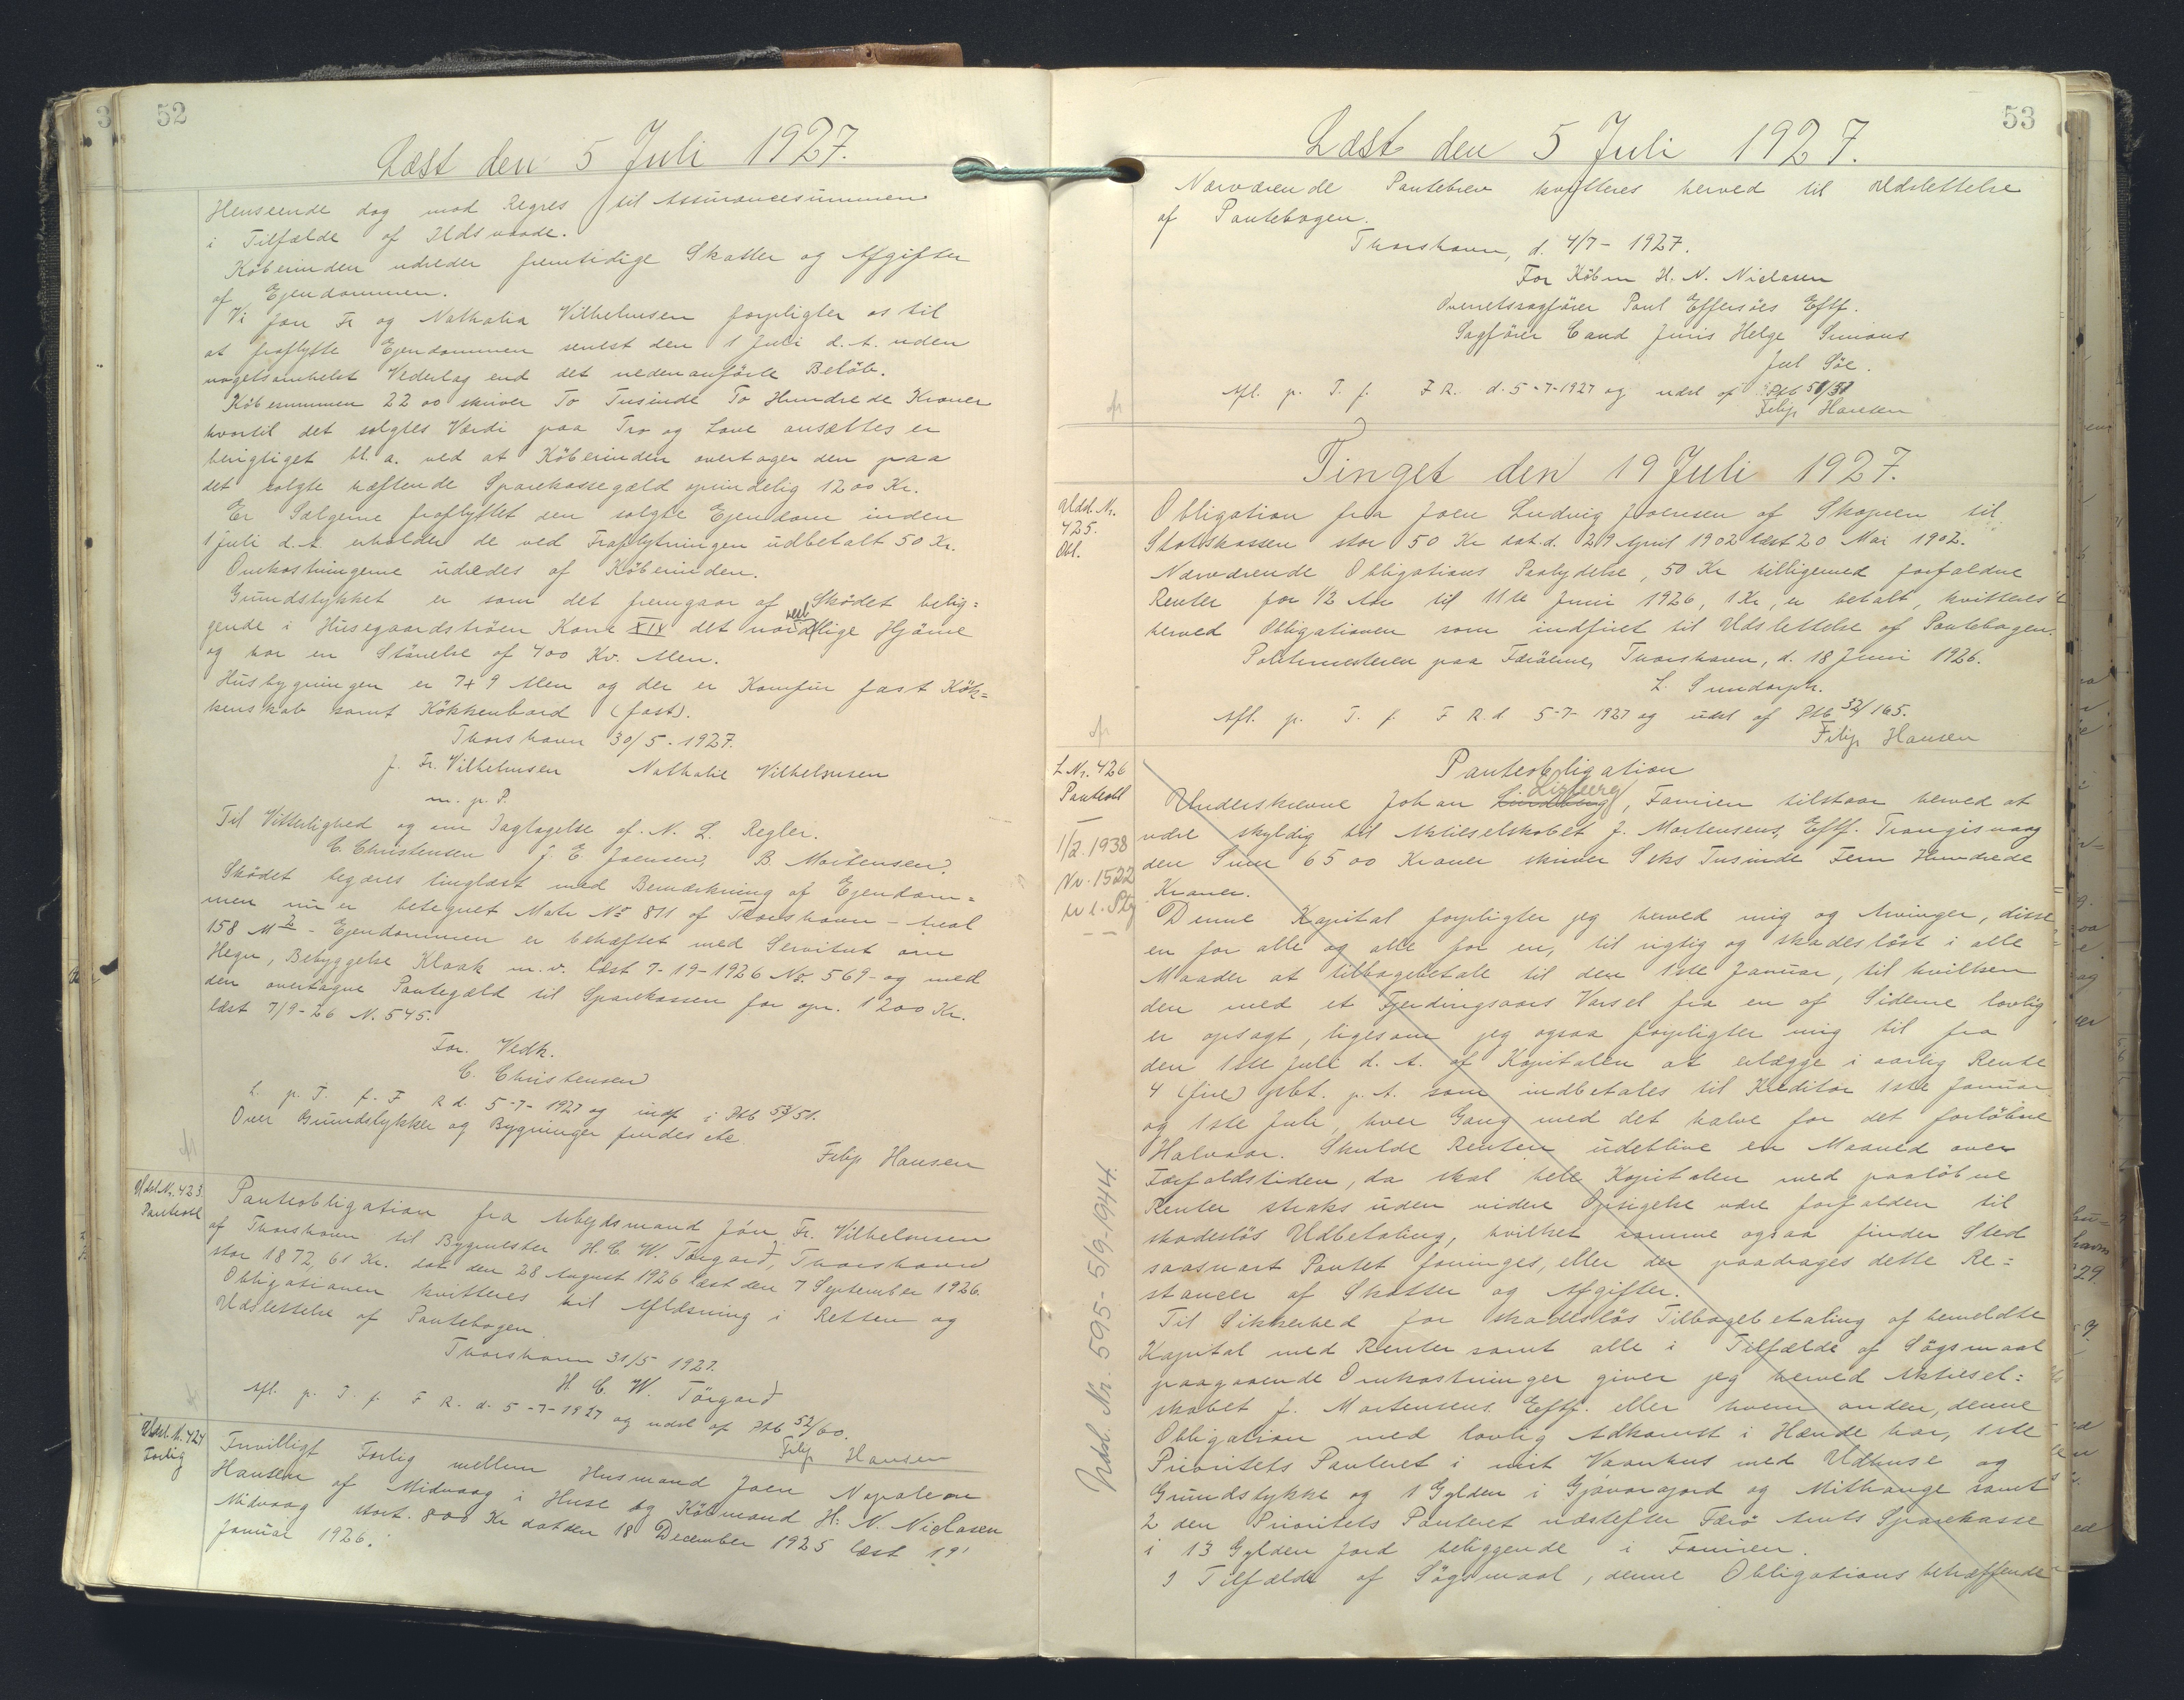 52
Læst den 5 Juli 1927.
Henseende dog mod Regres til Assurancesummen
i Tilfælde af Ildsvaade.
Köberinden udreder fremtidige Skatter og Afgifter
af Ejendommen.
Vi Jon Fr og Nathalia Vilhelmsen forpligter os til
at fraflytte Ejendommen senest den 1 Juli d. A. uden
nogetsomhelst Vederlag end det nedenanförte Belöb.
Köbesummen 2200 skriver To Tusinde To Hundrede Kroner
hvortil det solgtes Værdi paa Tro og Love ansættes er
berigtiget bl. a. ved at Köberinden overtager den paa
det solgte hæftende Sparekassegæld oprindelig 1200 Kr.
Er Sælgerne fraflyttet den solgte Ejendom inden
1 Juli d. A. erholder de ved Fraflytningen udbetalt 50 Kr.
Omkostningerne udredes af Köberinden.
Grundstykket er som det fremgaar af Sködet belig=
gende i Husegaardströen Kone XIV det nordvestlige Hjörne
og har en Störrelse af 400 Kv. Alen.
Husbygningen er 7 x 9 Alen og der er Komfur fast Kök=
kenskab samt Kökkenbord (fast).
Thorshavn 30/5 - 1927.
J. Fr. Vilhelmsen Nathalie Vilhelmsen
m. p. P.
Til Vitterlighed og om Iagtagelse af N. L. Regler.
C. Christensen J. E. Joensen, B. Mortensen.
Sködet begæres tinglæst med Bemærkning af Ejendom=
men nu er betegnet Matr No 811 af Thorshavn - Areal
158 M2 - Ejendommen er behæftet med Servitut om
Hegn, Bebyggelse Kloak m. v. læst 7-19-1926 No. 569 - og med
den overtagne Pantegæld til Sparekassen for opr. 1200 Kr.
læst 7/9-26 N. 545.
For. Vedk.
C. Christensen
L. p. T. f. F R d. 5-7-1927 og indf i Ptb 53/51.
Over Grundstykker og Bygninger findes etc.
Filip Hansen
Udsl. Nr. 423.
Panteobl
Panteobligation fra Arbejdsmand Jón Fr. Vilhelmsen
af Thorshavn til Bygmester H. C. W. Törgard, Thorshavn
stor 1872,61 Kr. dat den 28 August 1926 læst den 7 September 1926.
Obligationen kvitteres til Aflæsning i Retten og
Udslettelse af Pantebogen.
Thorshavn 31/5 1927.
H. C. W. Törgard
Afl. p. T. f. F R. d. 5-7-1927 og udsl af Ptb 52/60.
Filip Hansen
Udsl. N. 424
Forlig
Frivilligt Forlig mellem Husmand Joen Napoleon
Hansen af Midvaag i Huse og Köbmand H. N. Niclasen
Midvaag stort. 800 Kr dat den 18 December 1925 læst 19
Januar 1926.
53
Læst den 5 Juli 1927.
Nærværende Pantebrev kvitteres herved til Udslettelse
af Pantebogen.
Thorshavn, d. 4/7 - 1927.
For Köbm H. N. Niclasen
Overretssagförer Poul Effersöes Eftf.
Sagförer Cand Juris Helge Simons
Jul Söe.
Afl. p. T. f. F R. d. 5-7-1927 og udsl af Ptb 51/51
Filip Hansen
Tinget den 19 Juli 1927.
Udsl. Nr.
425.
Obl.
Obligation fra Joen Ludvig Joensen af Skopun til
Statskassen stor 50 Kr dat. d. 29 April 1902 læst 20 Mai 1902.
Nærværende Obligations Paalydelse, 50 Kr tilligemed forfaldne
Renter for 1/2 Aar til 11te Juni 1926, 1 Kr, er betalt, kvitteres
herved Obligationen som indfriet til Udslettelse af Pantebogen.
Politimesteren paa Færöerne, Thorshavn, d. 18 Juni 1926.
L. Sundorph.
Afl. p. T. f. F R. d 5-7-1927 og udsl af Ptb 32/165.
Filip Hansen
L Nr. 426
Panteobl
1/2. 1938
Nr. 1522
Udsl. Nr. 595 - 5/9-1944.
Panteobligation
Lisberg
Underskrevne Johan Lindberg, Famien tilstaar herved at
være skyldig til Aktieselskabet J. Mortensens, Eftf. Trangisvaag
den Sum 6500 Kroner skriver Seks Tusinde Fem Hundrede
Kroner.
Denne Kapital forpligter jeg herved mig og Arvinger, disse
en for alle og alle for en, til rigtig og skadeslöst i alle
Maader at tilbagebetale til den 1ste Januar, til hvilken
den med et Fjerdingsaars Varsel fra en af Siderne lovlig
er opsagt, ligesom jeg ogsaa forpligter mig til fra
den 1ste Juli d. A. af Kapitalen at erlægge i aarlig Rente
4 (fire) pbt. p. A. som indbetales til Kreditor 1ste Januar
og 1ste Juli, hver Gang med det halve for det forlöbne
Halvaar. Skulde Renten udeblive en Maaned over
Forfaldstiden, da skal hele Kapitalen med paalöbne
Renter straks uden videre Opsigelse være forfalden til
skadeslös Udbetaling, hvilket samme ogsaa finder Sted
saasnart Pantet forringes, eller der paadrages dette Re=
stancer af Skatter og Afgifter.
Til Sikkerhed for skadeslös Tilbagebetaling af bemeldte
Kapital med Renter samt alle i Tilfælde af Sögsmaal
paagaaende Omkostninger giver jeg herved Aktiesel=
skabet J. Mortensens Eftf. eller hvem anden, denne
Obligation med lovlig Adkomst i Hænde har, 1ste
Prioritets Panteret i mit Vaanhus med Udhuse og
Grundstykke og 1 Gylden i Gjøvaragord og Mithange samt
2 den Prioritets Panteret næstefter Færö Amts Sparekasse
i 13 Gylden Jord beliggende i Famien.
I Tilfælde af Sögsmaal, denne Obligations betræffende